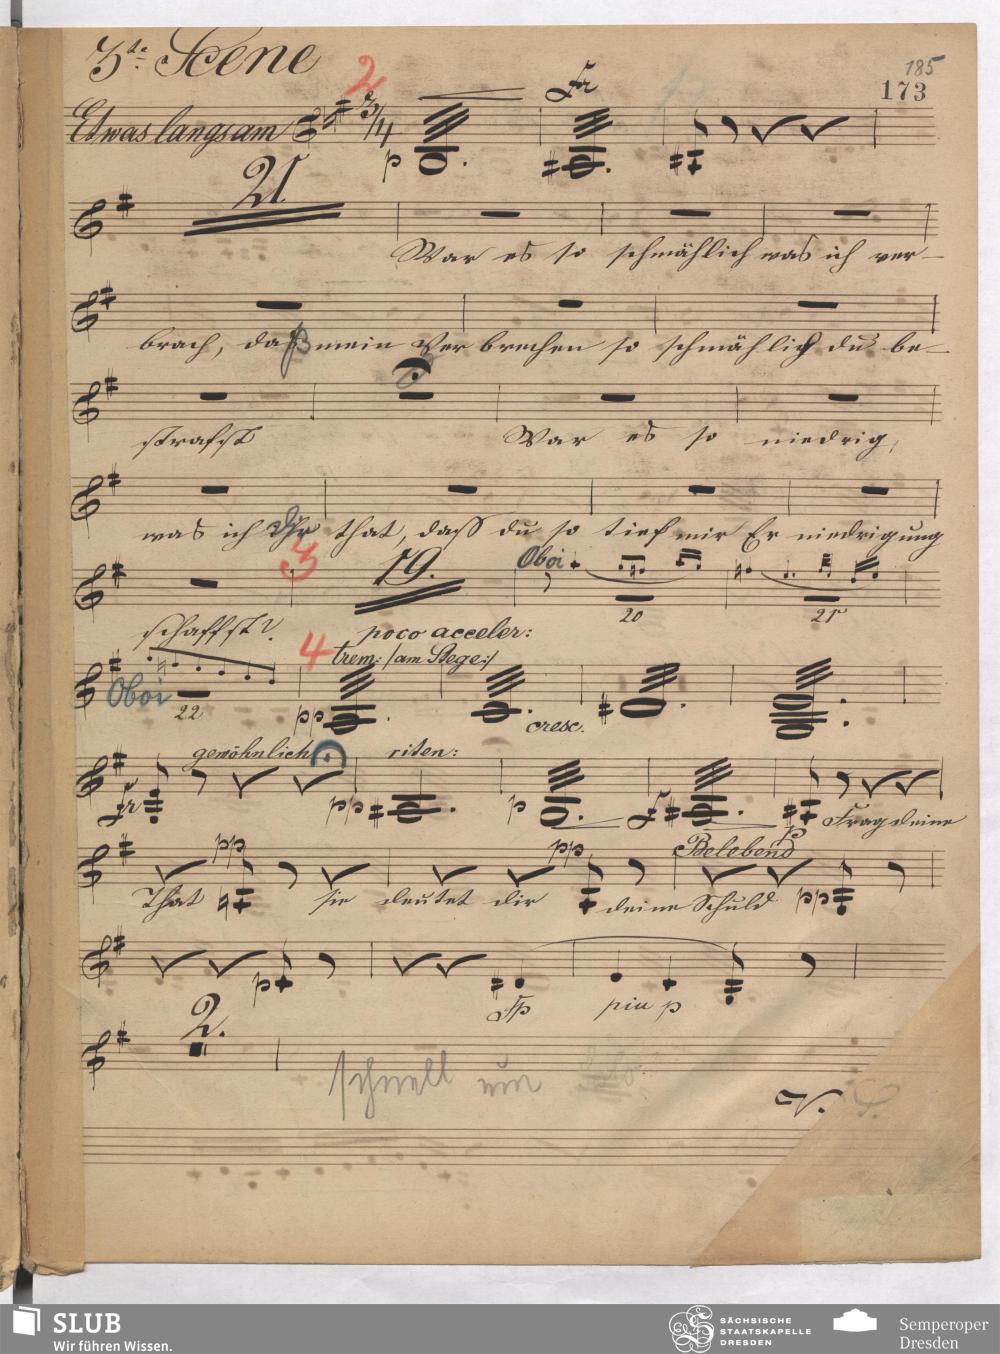 3te Scene
2
185
173
Etwas langsam 3/4
p
21
War es so schmählich was ich ver-
brach, daß mein Verbrechen so schmählich du be-
strafst War es so niedrig,
was ich Dir that, dass du so tief mir Er niedrigung
3 19. Oboi 20 21
schaffst? poco acceler:
4 trem: /am Stege:/
Oboi 22 pp cresc.
gewöhnlich riten:
pp p Frag deine
pp pp Belebend p
That sie deutet dir deine Schuld pp
p
fp piu p
2.
schnell um
V.
SLUB
Wir führen Wissen.
SÄCHSISCHE
STAATSKAPELLE
DRESDEN
Semperoper
Dresden